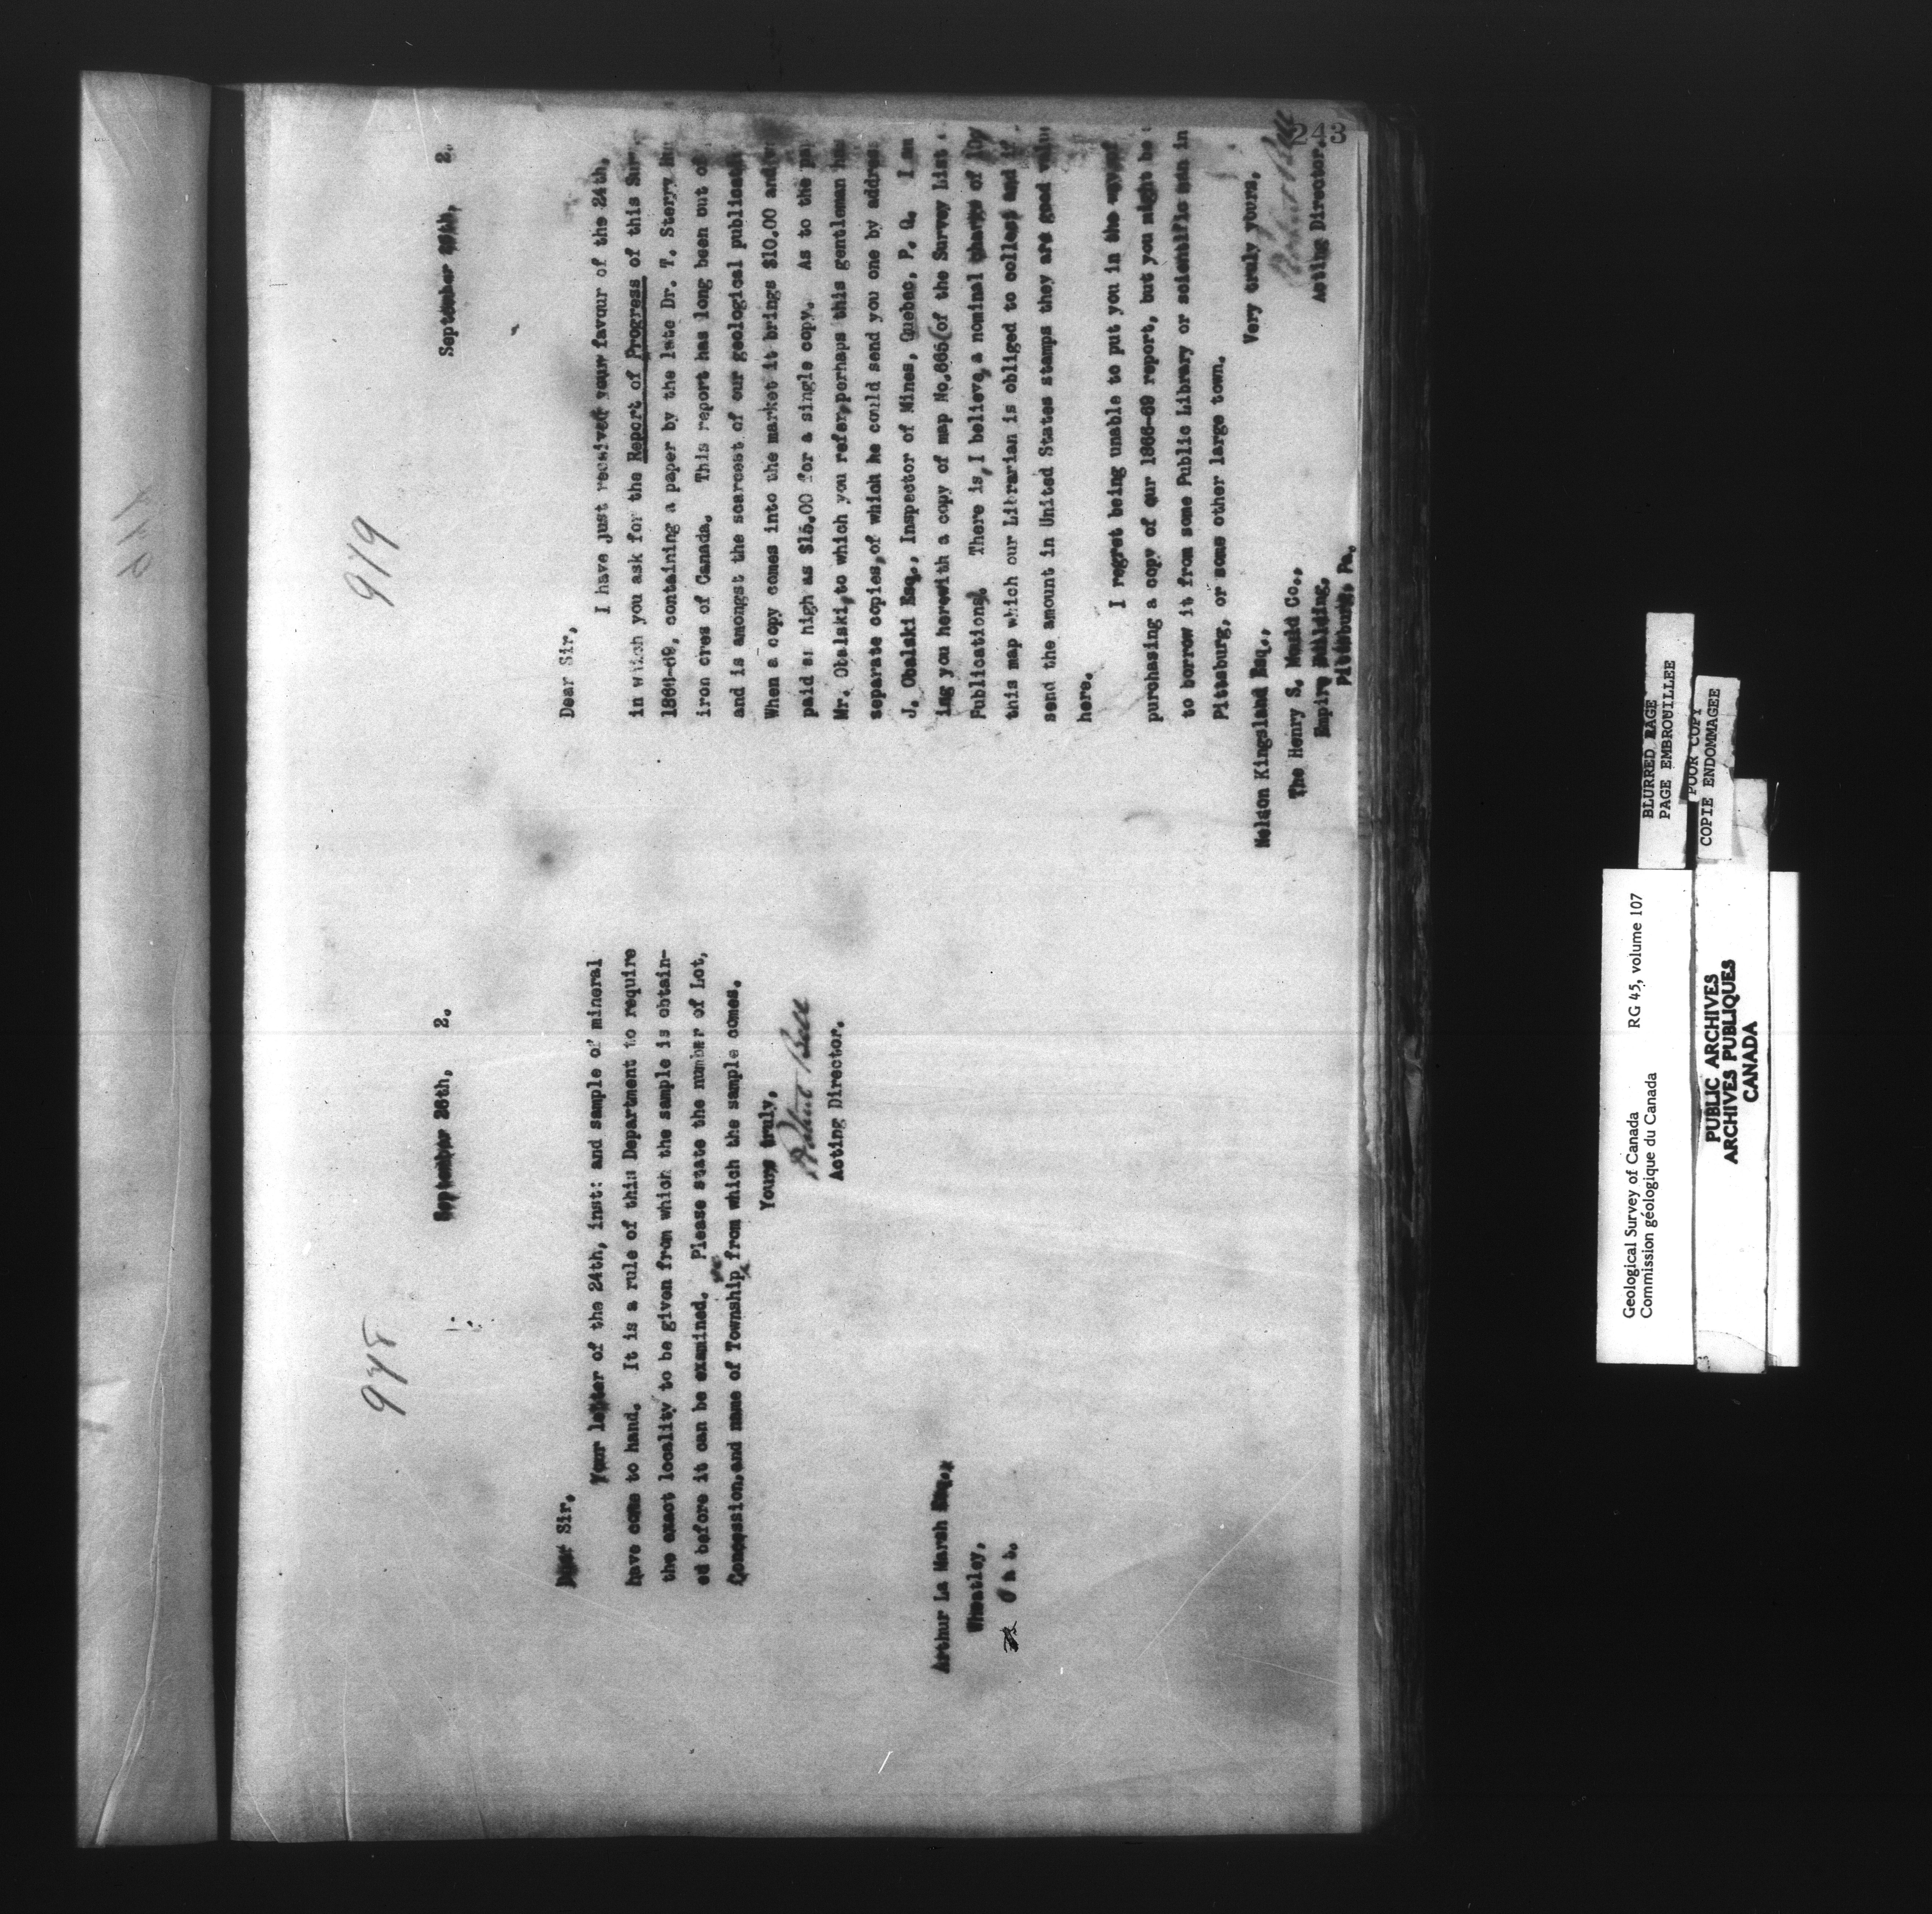 978
September 26th, 2.
Dear Sir,
Your letter of the 24th, inst: and sample of mineral
have come to hand. It is a rule of this Department to require
the exact locality to be given from which the sample is obtain-
ed before it can be examined. Please state the number of Lot,
Concession, and name of Township from which the sample comes.
Yours truly,
Robert Bell
Acting Director.
Arthur La Marsh Esq.,
Wheatley,
Ont.
979
243
September 2.
Dear Sir,
I have just received your favour of the 24th,
in which you ask for the Report of Progress of this
1866-69, containing a paper by the late Dr. T. Sterry
iron ores of Canada. This report has long been out of
and is amongst the scarcest of our geological
When a copy comes into the market it brings $10.00 and
paid as high as $15.00 for a single copy. As to the
Mr. Obalski, to which you refer, perhaps this gentleman has
separate copies, of which he could send you one by
J. Obalski Esq., Inspector of Mines, Quebec, P. Q. I am
ing you herewith a copy of map No. 665 (of the Survey List
Publications). There is, I believe, a nominal charge of 10
this map which our Librarian is obliged to collect and if
send the amount in United States stamps they are good
here.
I regret being unable to put you in the way of
purchasing a copy of our 1866-69 report, but you might be
to borrow it from some Public Library or scientific man in
Pittsburg, or some other large town.
Very truly yours,
Robert Bell
Acting Director.
Nelson Kingsland Esq.,
The Henry S. Mould Co.,
Empire Building,
Pittsburg, Pa.
BLURRED PAGE
PAGE EMBROUILLEE
POOR COPY
COPIE ENDOMMAGEE
Geological Survey of Canada RG 45, volume 107
Commission géologique du Canada
PUBLIC ARCHIVES
ARCHIVES PUBLIQUES
CANADA